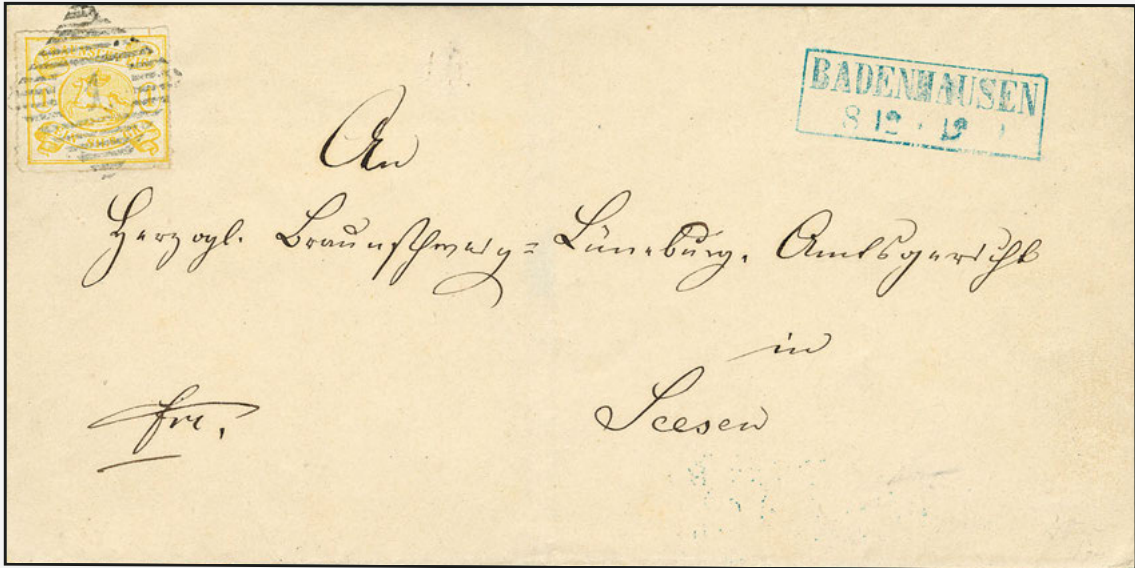 1
BADENHAUSEN
8 12 · 12
An
Herzogl. Braunschweig= Lüneburg. Amtsgericht
in
Seesen
fr.